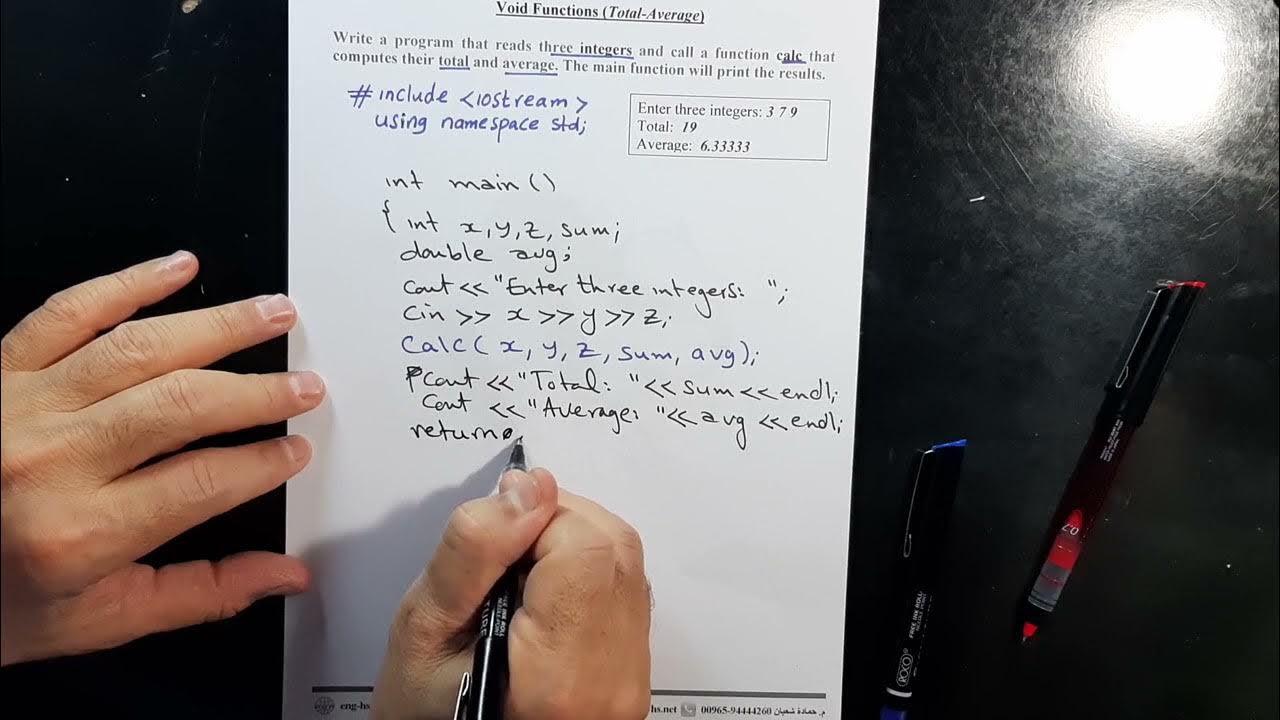 Void Functions (Total-Average)
Write a program that reads three integers and call a function calc that
computes their total and average. The main function will print the results.
# include <iostream>
using namespace std;
Enter three integers: 3 7 9
Total: 19
Average: 6.33333
int main ()
{ int x, y, z, sum;
double avg;
cout << "Enter three integers: ";
cin >> x >> y >> z;
calc( x, y, z, sum, avg);
cout << "Total: " << sum << endl;
cout << "Average: " << avg << endl;
return 0
eng-hs
hs.net 00965-94444260 م. حمادة شعبان
FREE INK ROLL
ROCO
0.7